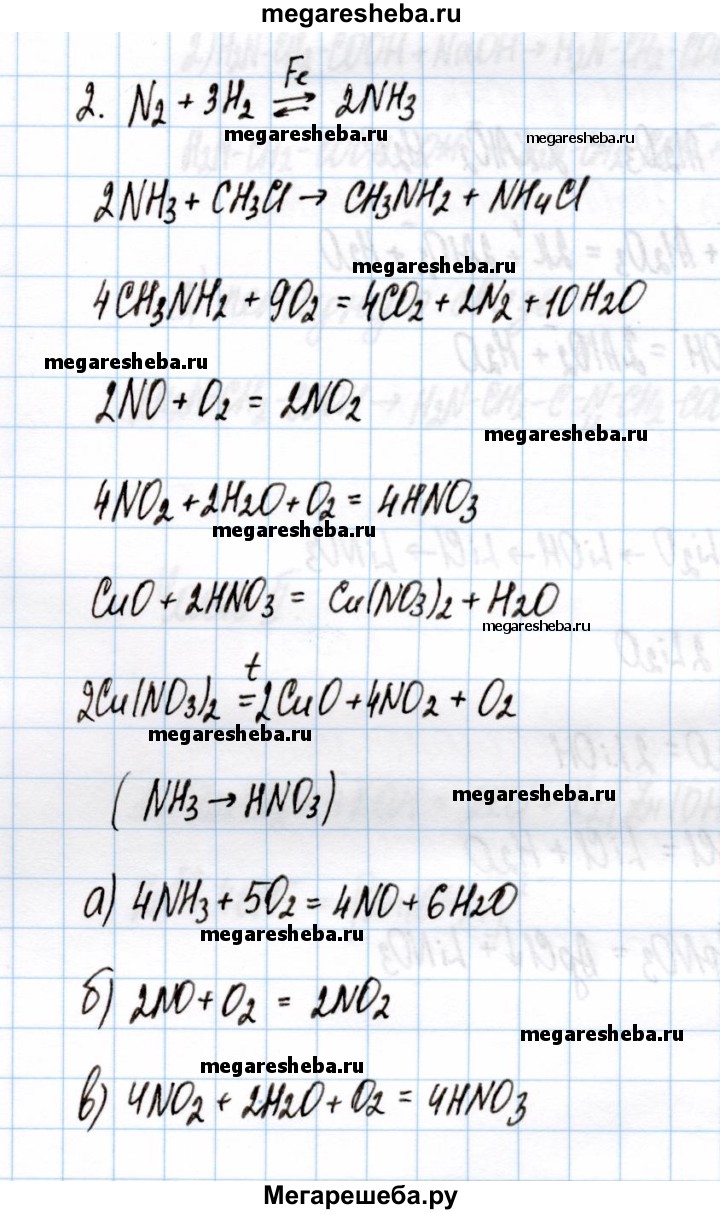 megaresheba.ru
2. N2 + 3H2 ⇄ 2NH3
Fe
megaresheba.ru
megaresheba.ru
2NH3 + CH3Cl → CH3NH2 + NH4Cl
megaresheba.ru
4CH3NH2 + 9O2 = 4CO2 + 2N2 + 10H2O
megaresheba.ru
2NO + O2 = 2NO2
megaresheba.ru
4NO2 + 2H2O + O2 = 4HNO3
megaresheba.ru
CuO + 2HNO3 = Cu(NO3)2 + H2O
megaresheba.ru
t
2Cu(NO3)2 = 2CuO + 4NO2 + O2
megaresheba.ru
(NH3 → HNO3)
megaresheba.ru
а) 4NH3 + 5O2 = 4NO + 6H2O
megaresheba.ru
б) 2NO + O2 = 2NO2
megaresheba.ru
megaresheba.ru
в) 4NO2 + 2H2O + O2 = 4HNO3
Мегарешеба.ру